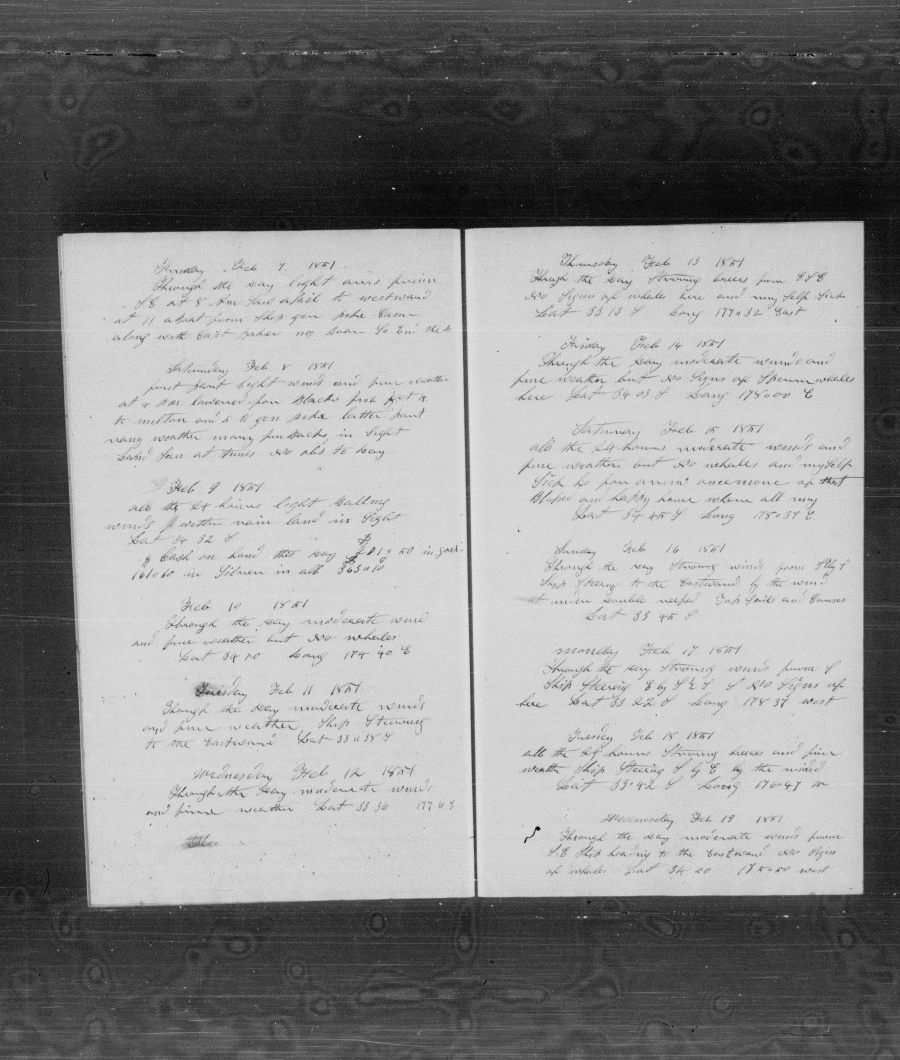 Feb 7 1851
Through the Day light airs from
S E at 8 Am Saw a Sail to westward
at 11 a Boat from Ship gen pike Came
along with Capt
Saturday Feb 8 1851
first part light winds and fine weather
at 4 Am lowered for Blacks
to and 2 to gen pike latter part
rany weather many fin Backs in Sight
Land Saw at times No obs to Day
Feb 9 1851
all the 24 hours light Balling
winds wether rain land in Sight
Lat 34 32 S
Cash on hand this Day 50 in gold
161"60 in Silver in all 363"10
Feb 10 1851
Through the Day moderate wind
and fine weather but No whales
Lat 34 50 Long 174 40 E
Tuesday Feb 11 1851
Though the Day moderate winds
and fine weather Ship Steering
to the Eastward Lat 33"38 S
Wednesday Feb 12 1851
Through the Day moderate winds
and fine weather Lat 33 36 177 E
Thursday Feb 13 1851
Through the Day Strong breeis from
No Signs of whales here and my Self Sick
Lat 33 13 S Long 177"32 East
Friday Feb 14 1851
Through the Day moderate winds and
fine weather but No Signs of Sperm whales
here Lat 34 03 S Long 178"00 E
Saturday Feb 15 1851
all the 24 hours moderate winds and
fine weather but No whales and myself
Sick o for once more at that
Blessed and happy home where all my
Lat 34 45 S Long 178"37 E
Sunday Feb 16 1851
Through the Day Strong winds from S by E
Ship Steering to the Eastward by the wind
at under Double reefed Top Sails and Courses
Lat 33 45 S
monday Feb 17 1851
Through the Day Strong winds from S
Ship Steering E by S & S No Signs of
here Lat 33 22 S Long 178 37 west
Tuesday Feb 18 1851
all the 24 hours Strong breezes and fine
weather Ship Steering S by E by the wind
Lait 33"42 S Long 176"47 w
Wednesday Feb 19 1851
Through the Day moderate winds from
S E Ship heading to the Eastward No Signs
of whales Lat 34 20 175"50 west